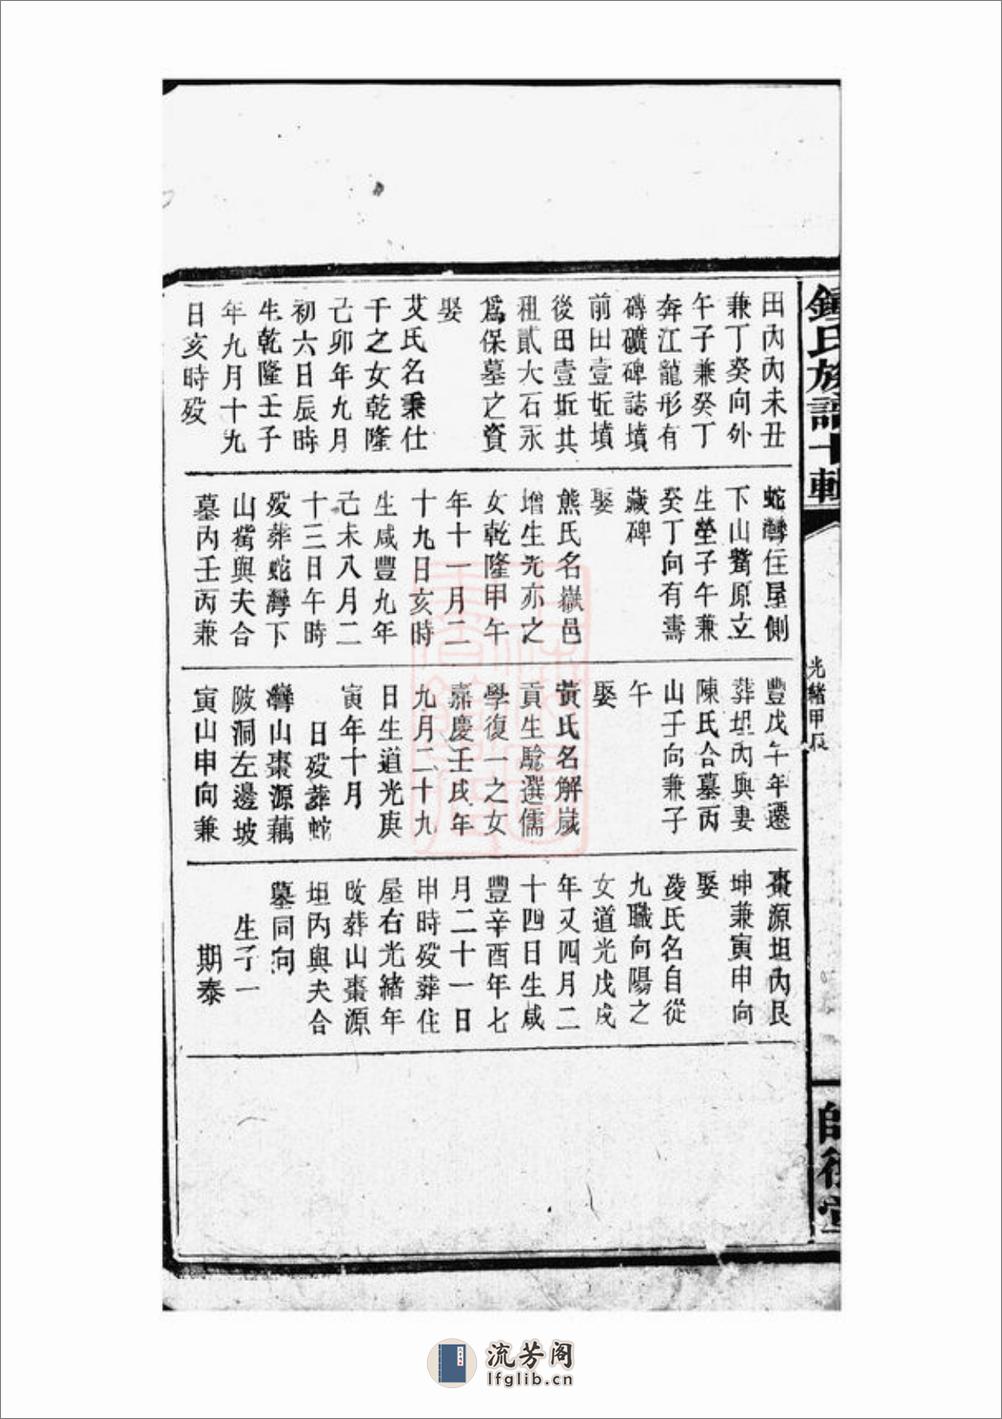 鍾氏族譜十輯
光緒甲辰
師德堂
田內丙未丑
兼丁癸向外
午子兼癸丁
奔江龍形有
磚礦碑誌墳
前田壹坵墳
後田壹坵共
租貳大石永
為保墓之資
娶
艾氏名秉仕
千之女乾隆
己卯年九月
初六日辰時
生乾隆壬子
年九月十九
日亥時歿
蛇灣住屋側
下山嘴原立
生塋子午兼
癸丁向有壽
藏碑
娶
熊氏名嶽邑
增生光亦之
女乾隆甲午
年十一月二
十九日亥時
生咸豐九年
己未八月二
十三日午時
歿葬蛇灣下
山嘴與夫合
墓丙壬丙兼
豐戊午年遷
葬坦內與妻
陳氏合墓丙
山子向兼子
午
娶
黃氏名解崴
貢生駿選儒
學復一之女
嘉慶壬戌年
九月二十九
日生道光庚
寅年十月
日歿葬蛇
灣山棗源藕
陂洞左邊坡
寅山申向兼
棗源坦內艮
坤兼寅申向
娶
淩氏名自從
九職向陽之
女道光戊戌
年又四月二
十四日生咸
豐辛酉年七
月二十一日
申時歿葬住
屋右光緒年
改葬山棗源
坦內與夫合
墓同向
生子一
期泰
流芳阁
lfglib.cn